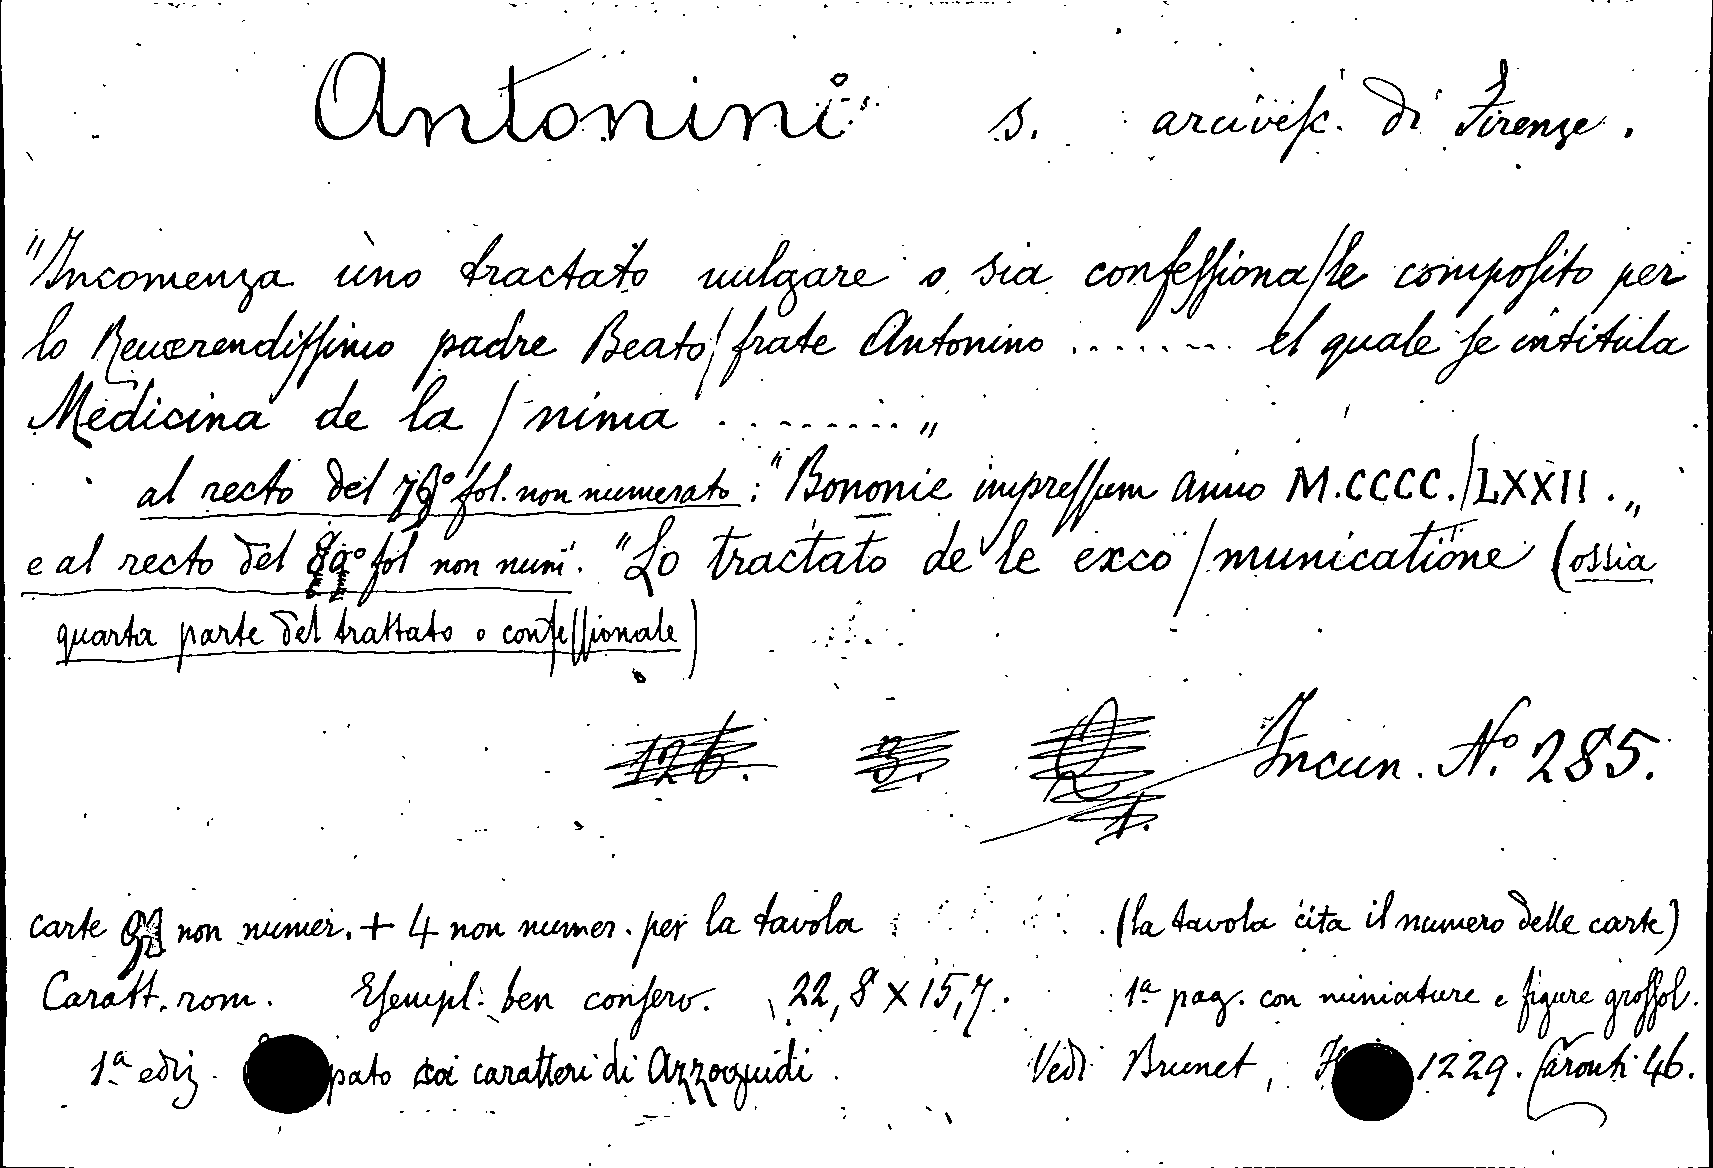 Antonini s. arcivesc. di Firenze.
"Incomenza uno tractato uulgare o sia confessiona/le composito per
lo Reuerendissimo padre Beato/ frate Antonino ........ el quale se intitula
Medicina de la / nima ......... "
al recto del fol. non numerato: "Bononie impressum anno M.CCCC./LXXII. "
e al recto del fol non num. "Lo tractato de le exco/municatione (ossia
quarta parte del trattato o confessionale)
126. 3. Q Incun. N.° 285.
1.
carte non numer. + 4 non numer. per la tavola (la tavola cita il numero delle carte)
Caratt. rom. Esempl. ben conserv. 22,8 x 15,7. 1ª pag. con miniature e figure grossol.
1ª ediz. pato coi caratteri di Azzoguidi. Vedi Brunet, 1229. Caronti 46.